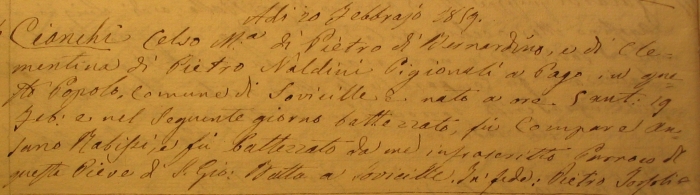 Adì 20 Febbrajo 1859.
Cianchi Celso M.ª di Pietro di Bernardino, e di Cle-
mentina di Pietro Naldini Pigionali a Pago. in que-
sto Popolo, Comune di Sovicille è nato a ore 5 ant: 19
Feb: e nel seguente giorno battezzato, fù Compare An-
sano Rabissi, e fù battezzato da me infrascritto Parroco di
questa Pieve di S. Gio: Batta a Sovicille. In fede: Pietro